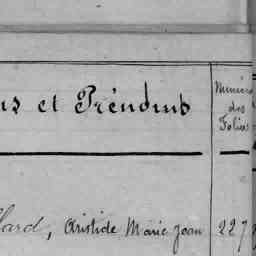 et Prénoms
Numéros
des
Folios
Aristide Marie Jean 227